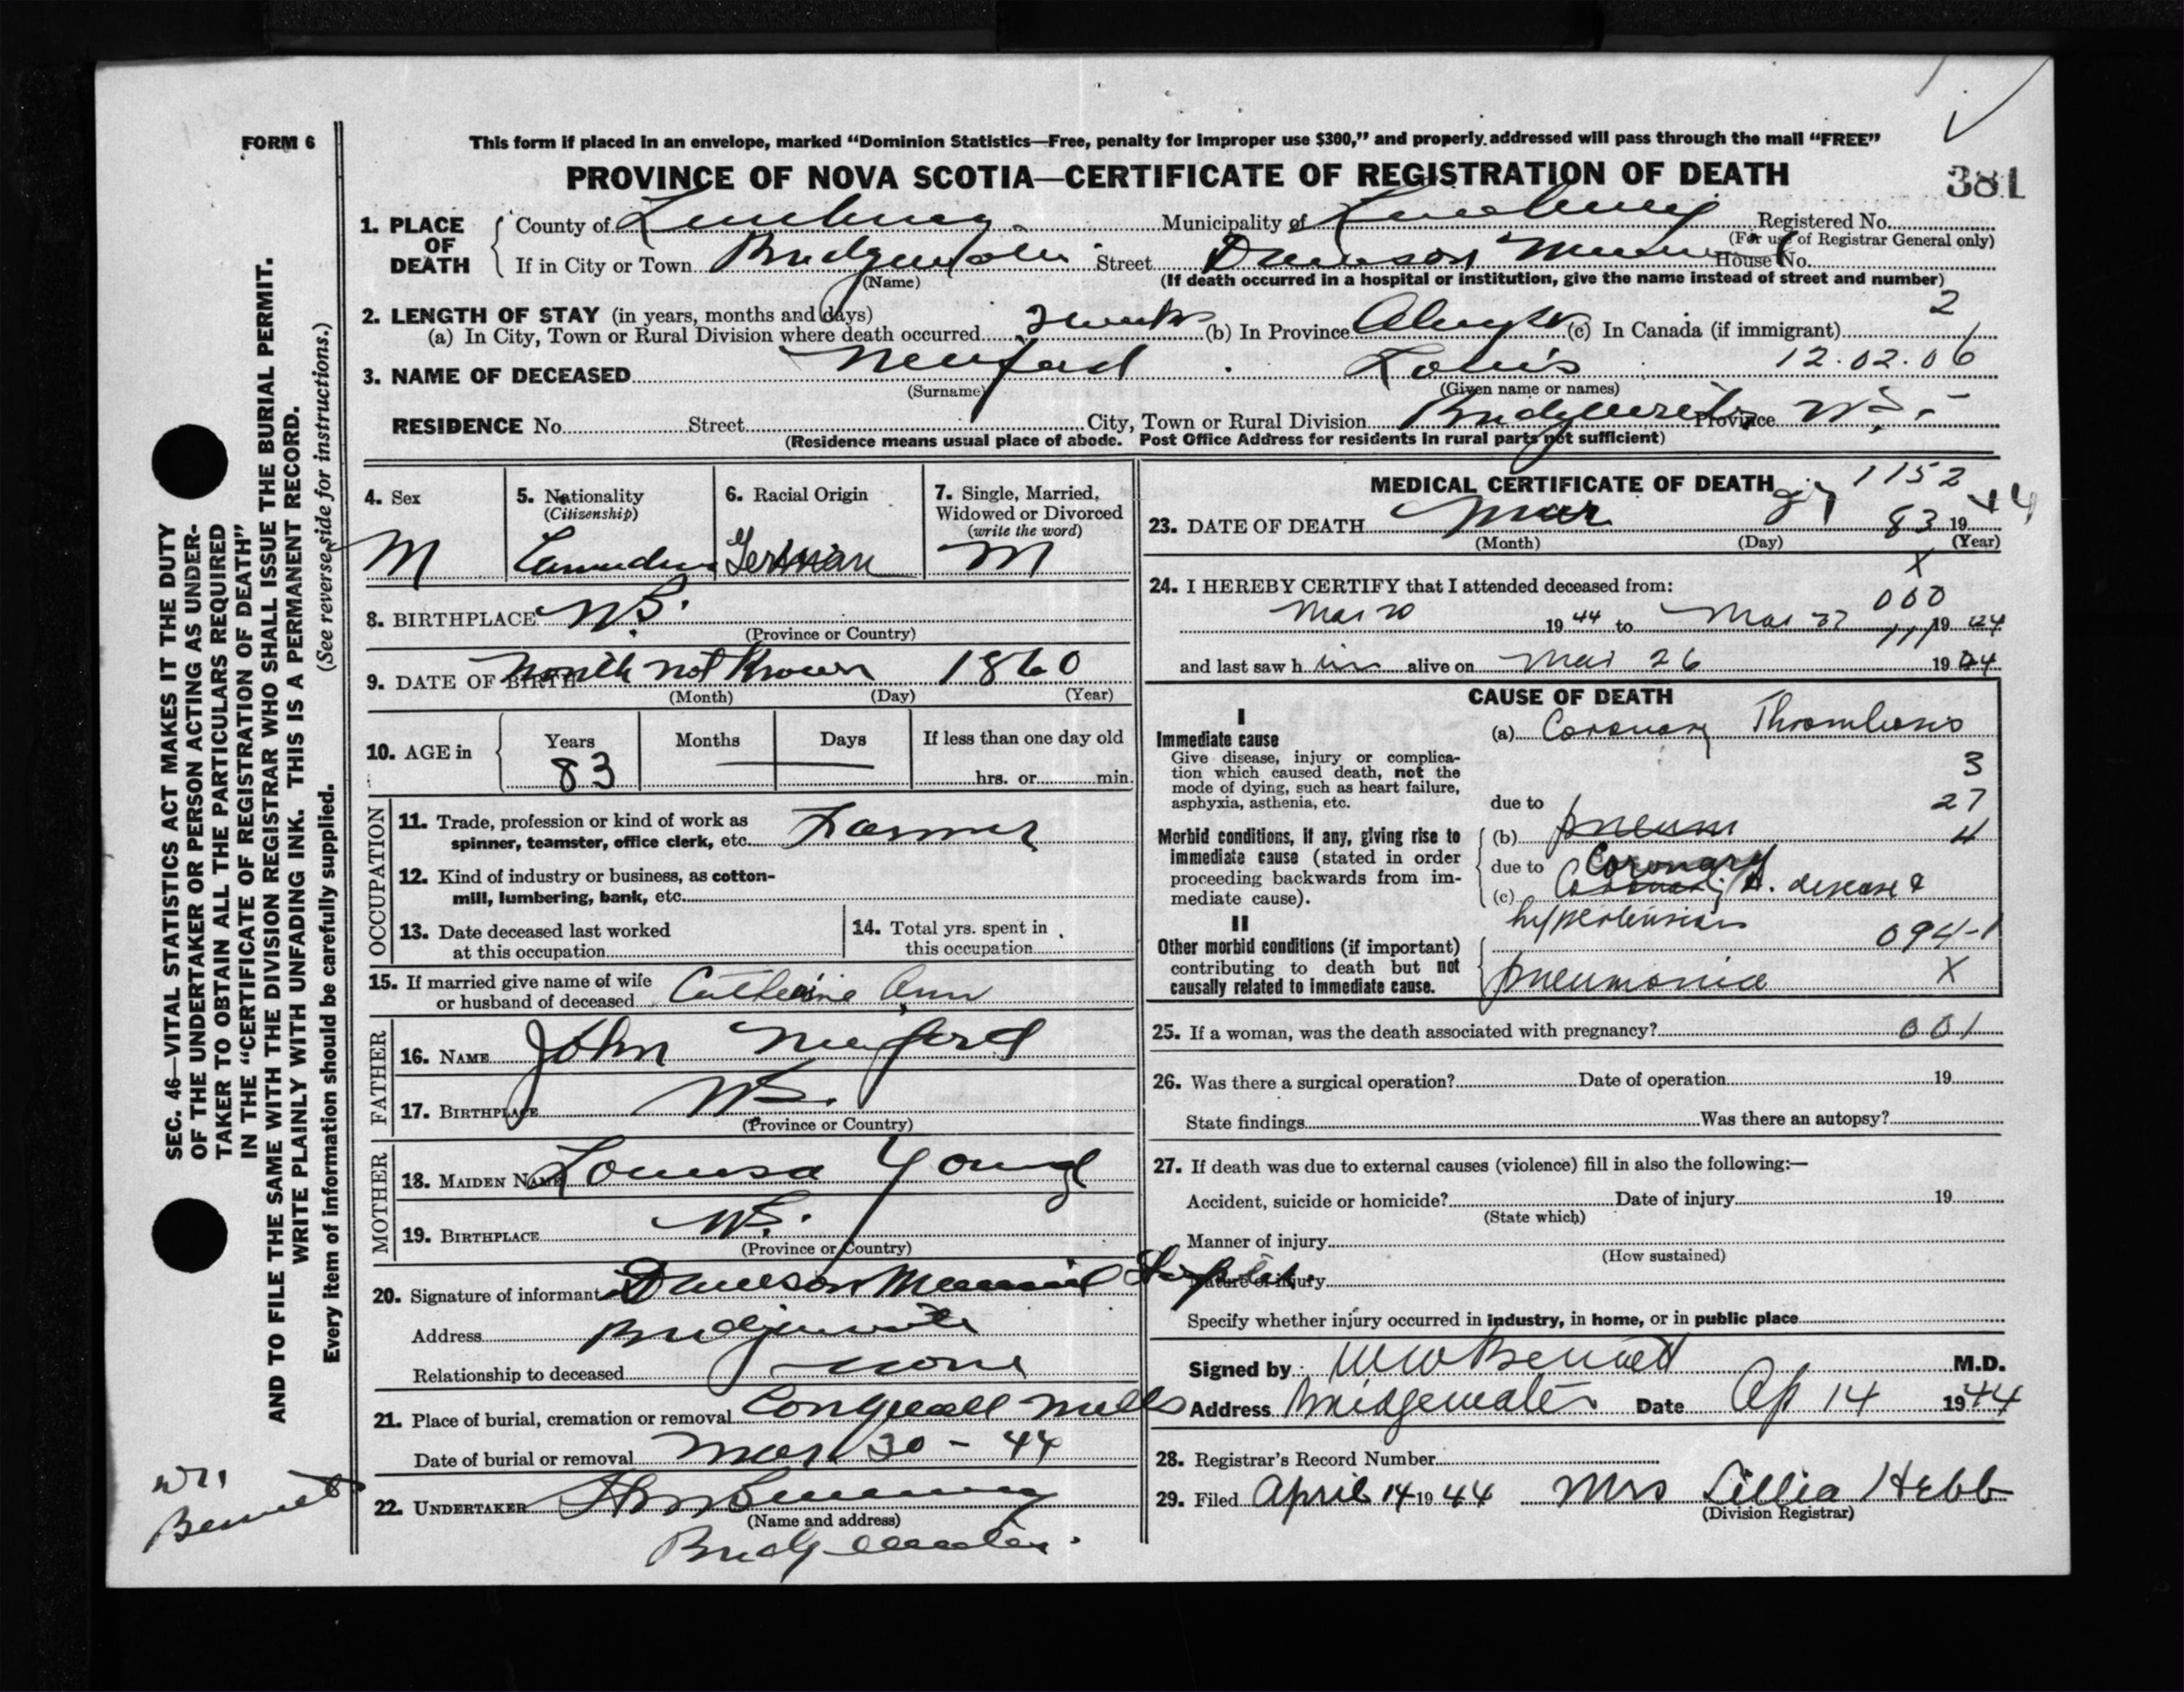 FORM 6
This form if placed in an envelope, marked "Dominion Statistics—Free, penalty for improper use $300," and properly addressed will pass through the mail "FREE"
PROVINCE OF NOVA SCOTIA—CERTIFICATE OF REGISTRATION OF DEATH
381
1. PLACE OF DEATH
County of Lunenburg Municipality of Lunenburg Registered No.
(For use of Registrar General only)
If in City or Town Bridgewater Street Dawson Memorial House No.
(Name) (If death occurred in a hospital or institution, give the name instead of street and number)
2. LENGTH OF STAY (in years, months and days) 2
(a) In City, Town or Rural Division where death occurred 2 weeks (b) In Province Always (c) In Canada (if immigrant)
3. NAME OF DECEASED Mufford Louis 12.02.06
(Surname) (Given name or names)
RESIDENCE No. Street City, Town or Rural Division Bridgewater Province N.S.
(Residence means usual place of abode. Post Office Address for residents in rural parts not sufficient)
4. Sex
M
5. Nationality
(Citizenship)
Canadian
6. Racial Origin
German
7. Single, Married, Widowed or Divorced
(write the word)
M
8. BIRTHPLACE N.S.
(Province or Country)
9. DATE OF BIRTH Month not Known 1860
(Month) (Day) (Year)
10. AGE in Years Months Days If less than one day old
83 hrs. or min.
OCCUPATION
11. Trade, profession or kind of work as
spinner, teamster, office clerk, etc. Farmer
12. Kind of industry or business, as cotton-
mill, lumbering, bank, etc.
13. Date deceased last worked
at this occupation
14. Total yrs. spent in
this occupation
15. If married give name of wife
or husband of deceased Catherine Ann
FATHER
16. NAME John Mufford
17. BIRTHPLACE N.S.
(Province or Country)
MOTHER
18. MAIDEN NAME Louisa Young
19. BIRTHPLACE N.S.
(Province or Country)
20. Signature of informant Dawson Memorial Hospital
Address Bridgewater
Relationship to deceased none
21. Place of burial, cremation or removal Conquerall Mills
Date of burial or removal Mar 30 - 44
22. UNDERTAKER
(Name and address)
Bridgewater
MEDICAL CERTIFICATE OF DEATH 1152
23. DATE OF DEATH Mar 27 83 1944
(Month) (Day) (Year)
X
24. I HEREBY CERTIFY that I attended deceased from:
000
Mar 20 1944 to Mar 27 1944
and last saw him alive on Mar 26 1944
CAUSE OF DEATH
I
Immediate cause
Give disease, injury or complica-
tion which caused death, not the
mode of dying, such as heart failure,
asphyxia, asthenia, etc.
(a) Coronary Thrombosis
3
due to 27
Morbid conditions, if any, giving rise to
immediate cause (stated in order
proceeding backwards from im-
mediate cause).
(b) pneum 4
due to Coronary
(c) Coronary A. disease &
hypertension
II
Other morbid conditions (if important)
contributing to death but not
causally related to immediate cause.
094-1
pneumonia X
25. If a woman, was the death associated with pregnancy? 001
26. Was there a surgical operation? Date of operation 19
State findings Was there an autopsy?
27. If death was due to external causes (violence) fill in also the following:—
Accident, suicide or homicide? Date of injury 19
(State which)
Manner of injury
(How sustained)
Nature of injury
Specify whether injury occurred in industry, in home, or in public place
Signed by W W Bennett M.D.
Address Bridgewater Date Ap 14 1944
28. Registrar's Record Number
29. Filed April 14 1944 Mrs Lillia Hebb
(Division Registrar)
SEC. 46—VITAL STATISTICS ACT MAKES IT THE DUTY
OF THE UNDERTAKER OR PERSON ACTING AS UNDER-
TAKER TO OBTAIN ALL THE PARTICULARS REQUIRED
IN THE "CERTIFICATE OF REGISTRATION OF DEATH"
AND TO FILE THE SAME WITH THE DIVISION REGISTRAR WHO SHALL ISSUE THE BURIAL PERMIT.
WRITE PLAINLY WITH UNFADING INK. THIS IS A PERMANENT RECORD.
Every item of information should be carefully supplied. (See reverse side for instructions.)
Bennett